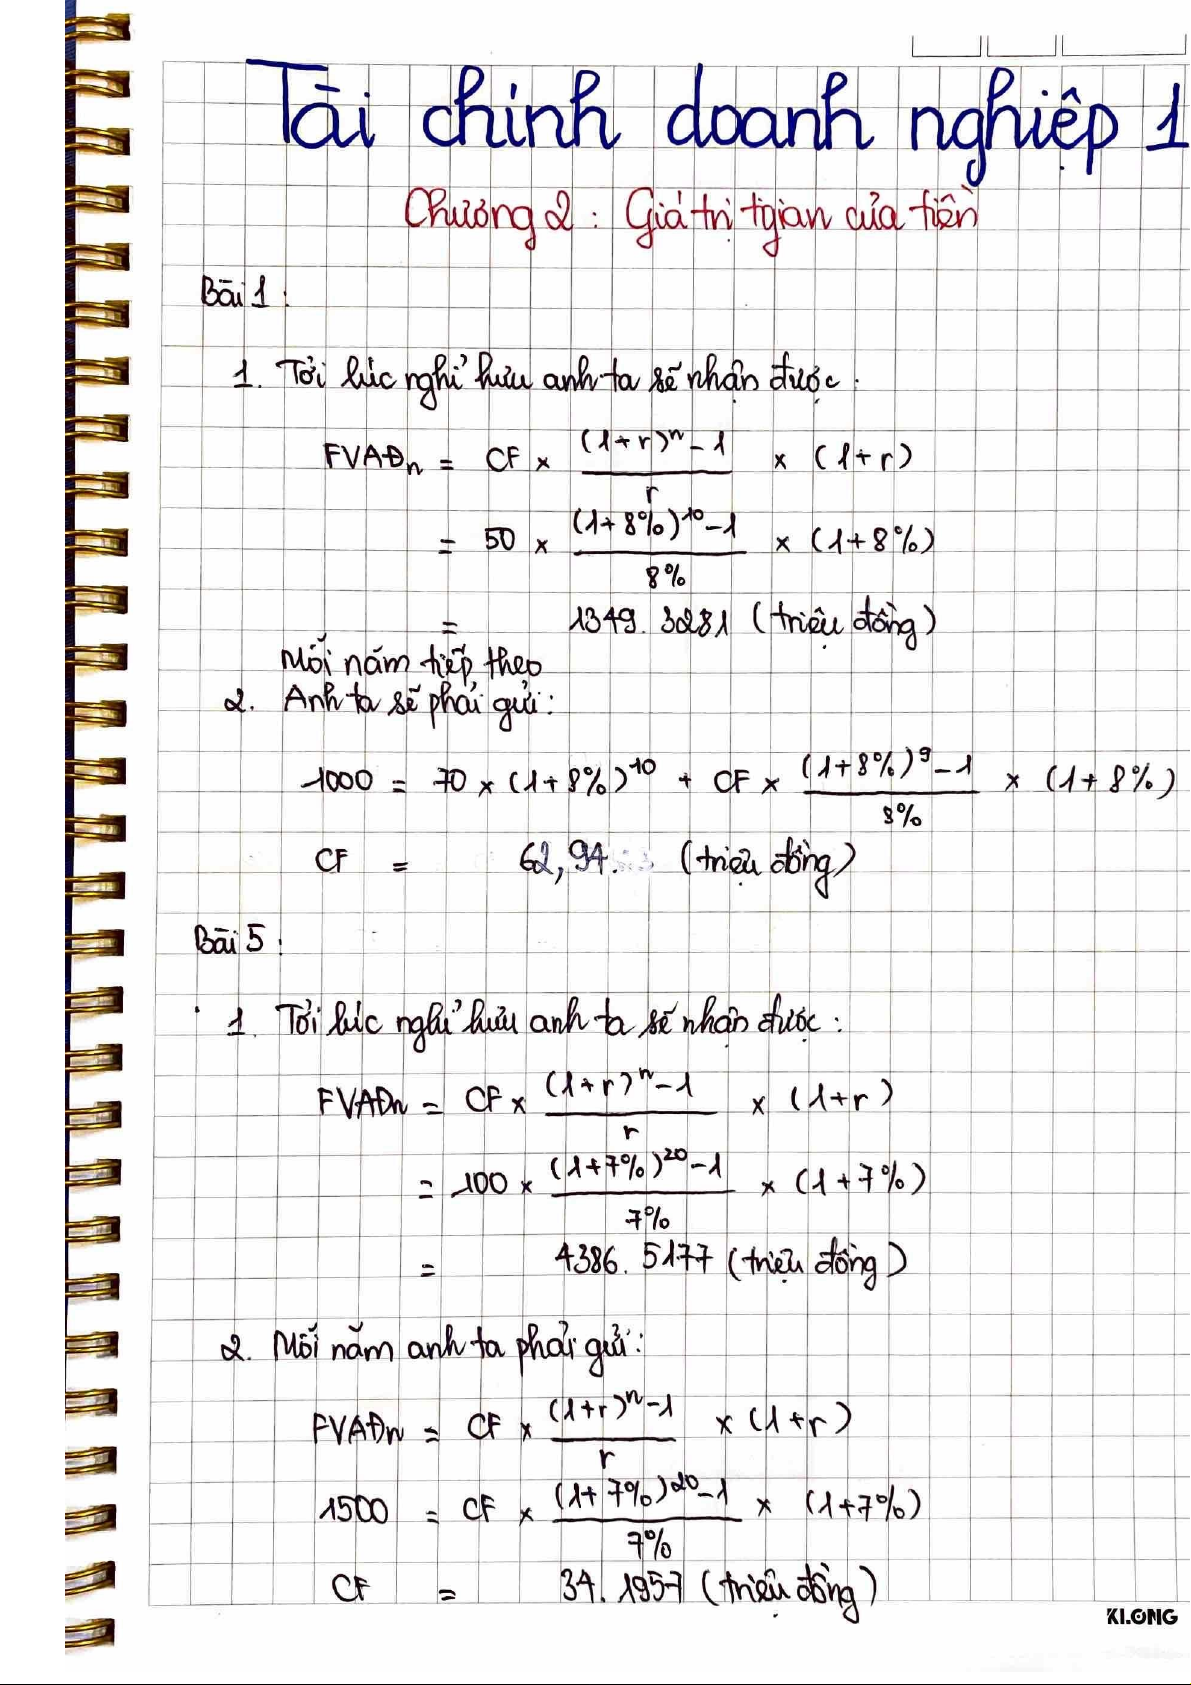 Tài chính doanh nghiệp 1
Chương 2 : Giá trị tgian của tiền
Bài 1 :
1. Tới lúc nghỉ hưu anh ta sẽ nhận được :
FVAĐn = CF × ((1+r)^n - 1) / r × (1+r)
= 50 × ((1+8%)^10 - 1) / 8% × (1+8%)
= 1349.3281 (triệu đồng)
Mỗi năm tiếp theo
2. Anh ta sẽ phải gửi :
1000 = 70 × (1+8%)^10 + CF × ((1+8%)^9 - 1) / 8% × (1+8%)
CF = 62,94. (triệu đồng)
Bài 5 :
1. Tới lúc nghỉ hưu anh ta sẽ nhận được :
FVAĐn = CF × ((1+r)^n - 1) / r × (1+r)
= 100 × ((1+7%)^20 - 1) / 7% × (1+7%)
= 4386.5177 (triệu đồng)
2. Mỗi năm anh ta phải gửi :
FVAĐn = CF × ((1+r)^n - 1) / r × (1+r)
1500 = CF × ((1+7%)^20 - 1) / 7% × (1+7%)
CF = 34.1957 (triệu đồng)
KLONG